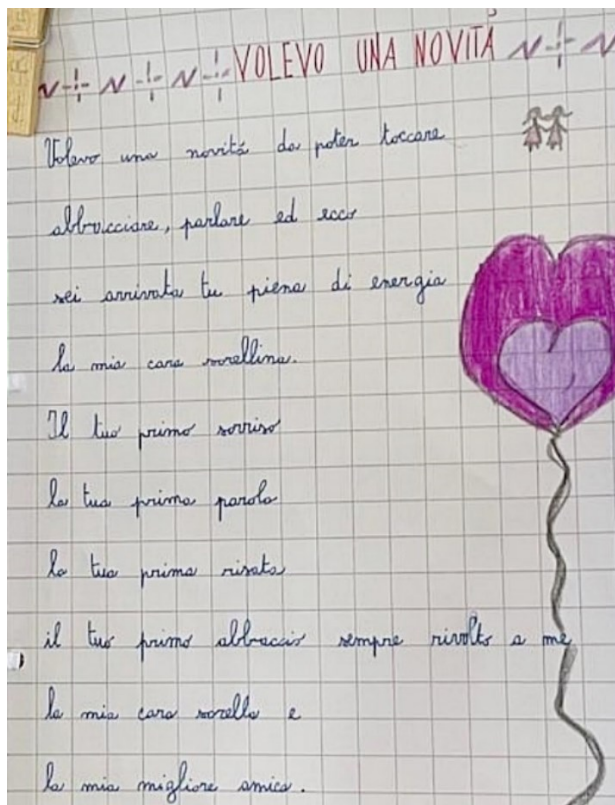 VOLEVO UNA NOVITÀ
Volevo una novitá da poter toccare
abbracciare, parlare ed ecco
sei arrivata tu piena di energia
la mia cara sorellina.
Il tuo primo sorriso
la tua prima parola
la tua prima risata
il tuo primo abbraccio sempre rivolto a me
la mia cara sorella e
la mia migliore amica.